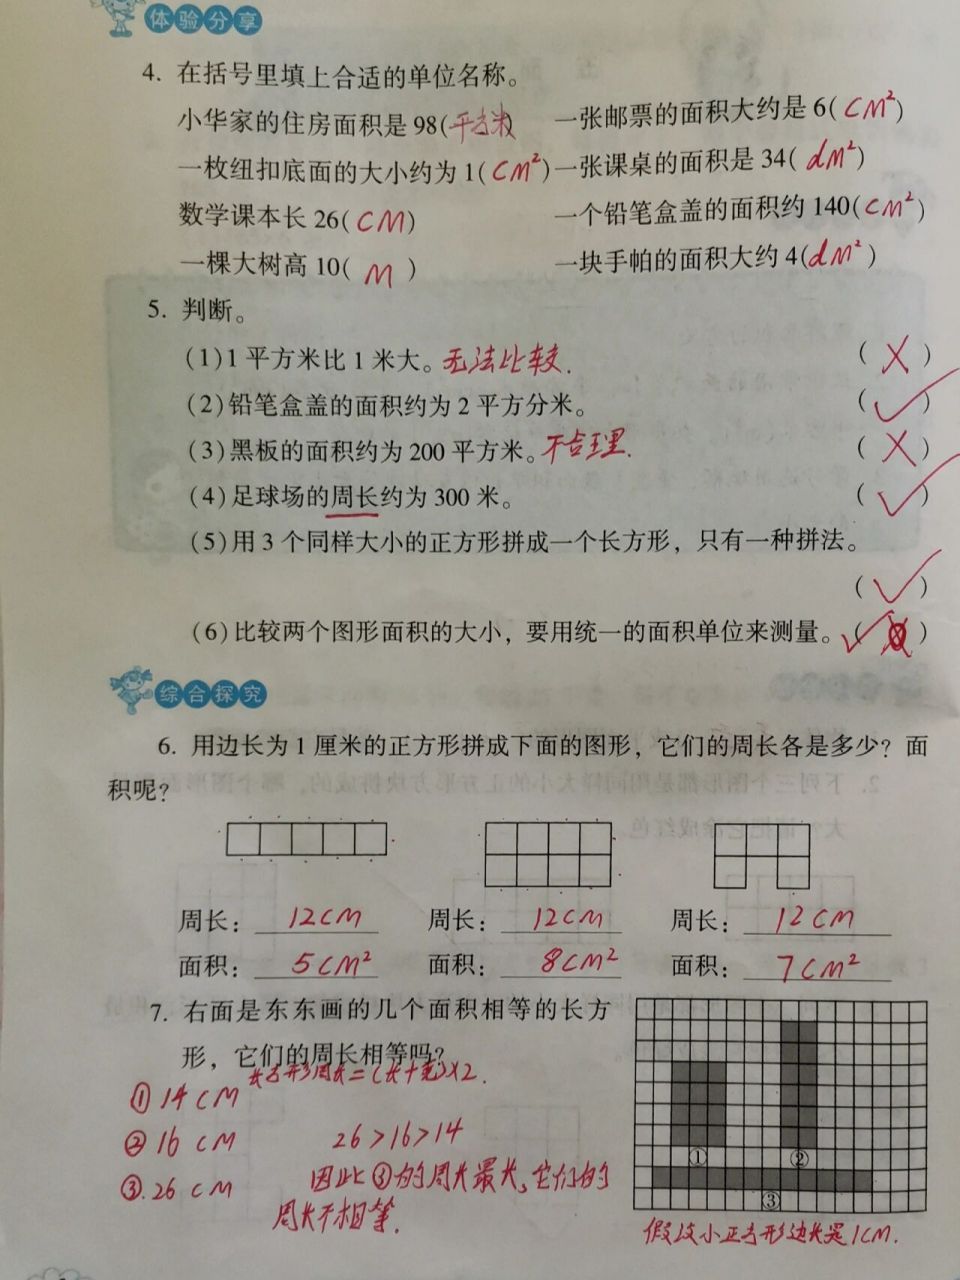 体验分享
4. 在括号里填上合适的单位名称。
小华家的住房面积是98(平方米) 一张邮票的面积大约是6(cm²)
一枚纽扣底面的大小约为1(cm²) 一张课桌的面积是34(dm²)
数学课本长26(cm) 一个铅笔盒盖的面积约140(cm²)
一棵大树高10(m) 一块手帕的面积大约4(dm²)
5. 判断。
(1)1平方米比1米大。无法比较. (×)
(2)铅笔盒盖的面积约为2平方分米。 (✓)
(3)黑板的面积约为200平方米。不合理. (×)
(4)足球场的周长约为300米。 (✓)
(5)用3个同样大小的正方形拼成一个长方形，只有一种拼法。
(✓)
(6)比较两个图形面积的大小，要用统一的面积单位来测量。✓( )
综合探究
6. 用边长为1厘米的正方形拼成下面的图形，它们的周长各是多少？面
积呢？
周长：12cm 周长：12cm 周长：12cm
面积：5cm² 面积：8cm² 面积：7cm²
7. 右面是东东画的几个面积相等的长方
形，它们的周长相等吗？
长方形周长=(长+宽)×2.
① 14cm
② 16cm 26>16>14
③.26cm 因此③的周长最长,它们的
周长不相等.
① ②
③
假设小正方形边长是1cm.